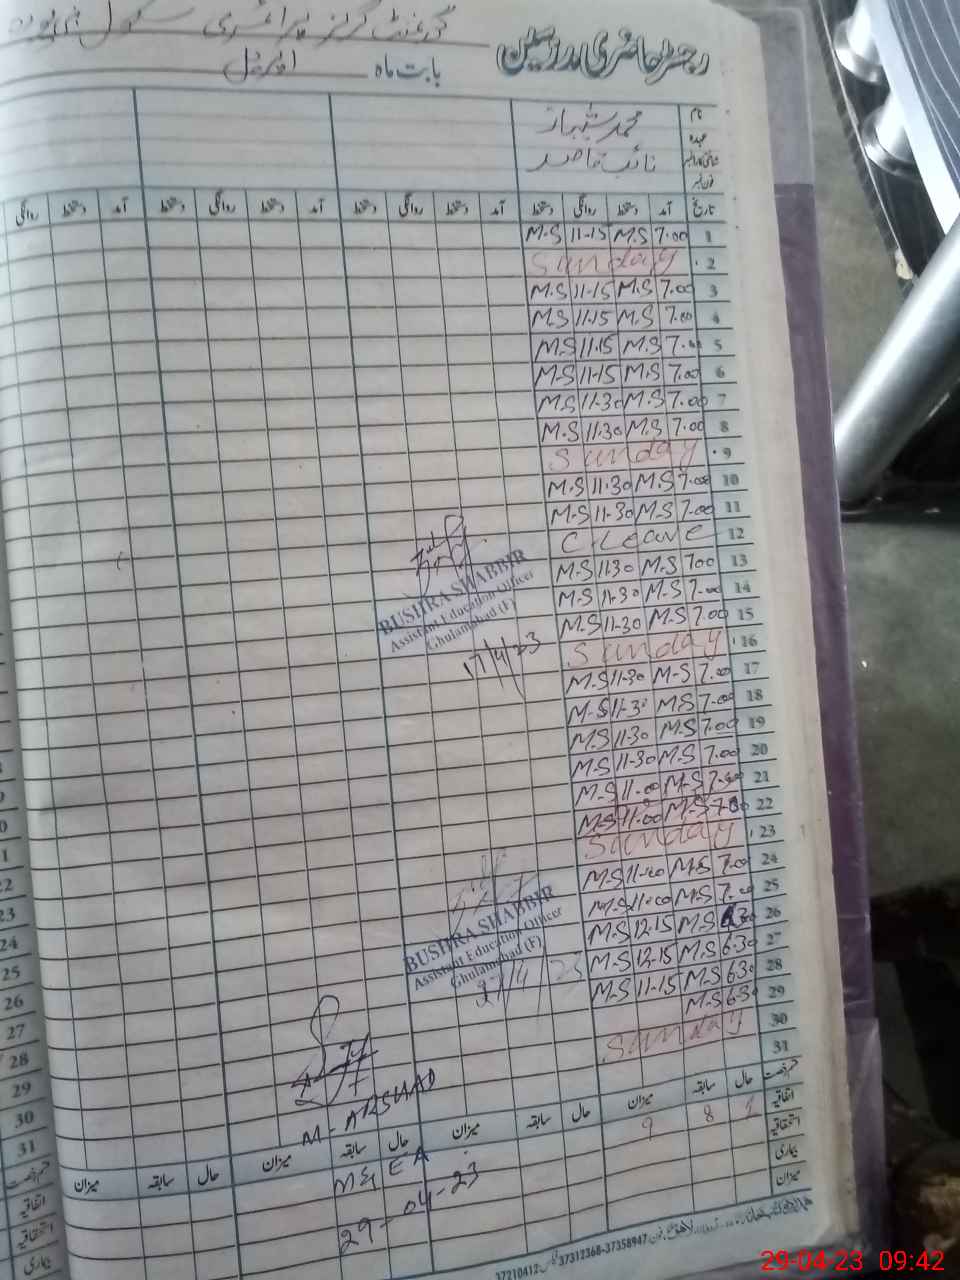 گورنمنٹ گرلز پرائمری سکول
رجسٹر حاضری مدرسین
بابت ماہ اپریل
نام محمد شہباز
عہدہ نائب قاصد
شناختی کارڈ نمبر
فون نمبر
تاریخ آمد دستخط روانگی دستخط آمد دستخط روانگی دستخط آمد دستخط روانگی دستخط آمد دستخط روانگی
1 7.00 M.S 11-15 M.S
2 Sunday
3 7.00 M.S 11-15 M.S
4 7.00 M.S 11.15 M.S
5 7.00 M.S 11.15 M.S
6 7.00 M.S 11-15 M.S
7 7.00 M.S 11-30 M.S
8 7.00 M.S 11.30 M.S
9 Sunday
10 7.00 M.S 11.30 M.S
11 7.00 M.S 11.30 M.S
12 C Leave
13 700 M.S 1130 M.S
14 7.00 M.S 11.30 M.S
15 7.00 M.S 11-30 M.S
16 Sunday
17 7.00 M-S 11-30 M.S
18 7.00 M.S 11-30 M-S
19 7.00 M.S 11-30 M.S
20 7.00 M.S 11-30 M-S
21 M-S 11-00 M-S
22 M-S 11.00 M-S
23 Sunday
24 7.00 M.S M.S
25 7.00 M.S 11.00 M.S
26 M.S 12.15 M-S
27 6.30 M.S 12-15 M-S
28 630 M.S 11-15 M-S
29 6.30 M.S
30 Sunday
31
BUSHRA SHABBIR
Assistant Education Officer
Ghulamabad (F)
17/4/23
BUSHRA SHABBIR
Assistant Education Officer
Ghulamabad (F)
27/4/23
M-ARSHAD
MEA
29-04-23
قسم رخصت حال سابقہ میزان حال سابقہ میزان حال سابقہ میزان حال سابقہ میزان
اتفاقیہ 1 8 9
استحقاقیہ
بیماری
میزان
22
23
24
25
26
27
28
29
30
31
قسم رخصت
اتفاقیہ
استحقاقیہ
بیماری
فون 37358947-37312368 فیکس 37210412
29-04-23 09:42